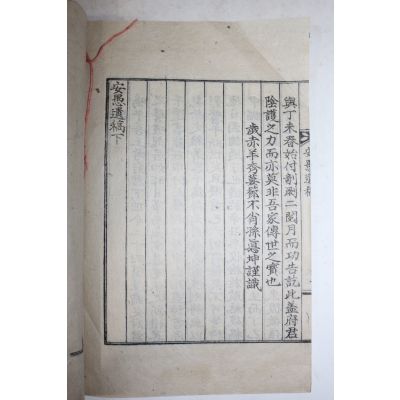 與丁未春始付剞劂二閱月而功告訖此蓋府君
陰護之力而亦莫非吾家傳世之寶也
歲赤羊秀葽節不肖孫憙坤謹識
安愚遺稿下
安愚遺稿